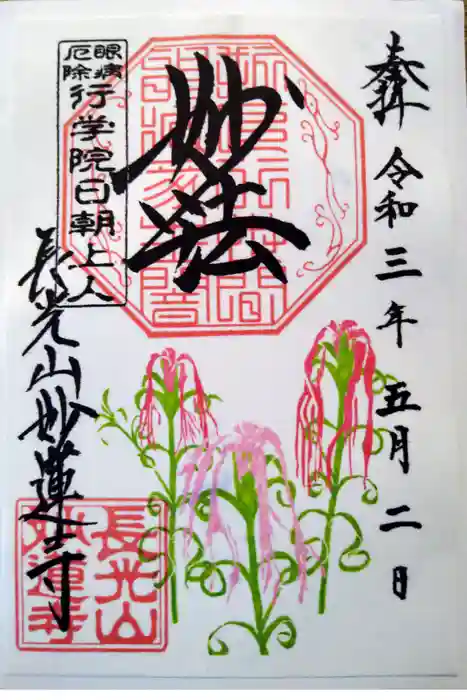 奉拝
令和三年五月二日
妙法
眼病
厄除
行学院日朝上人
長光山妙蓮寺
長光山
妙蓮寺